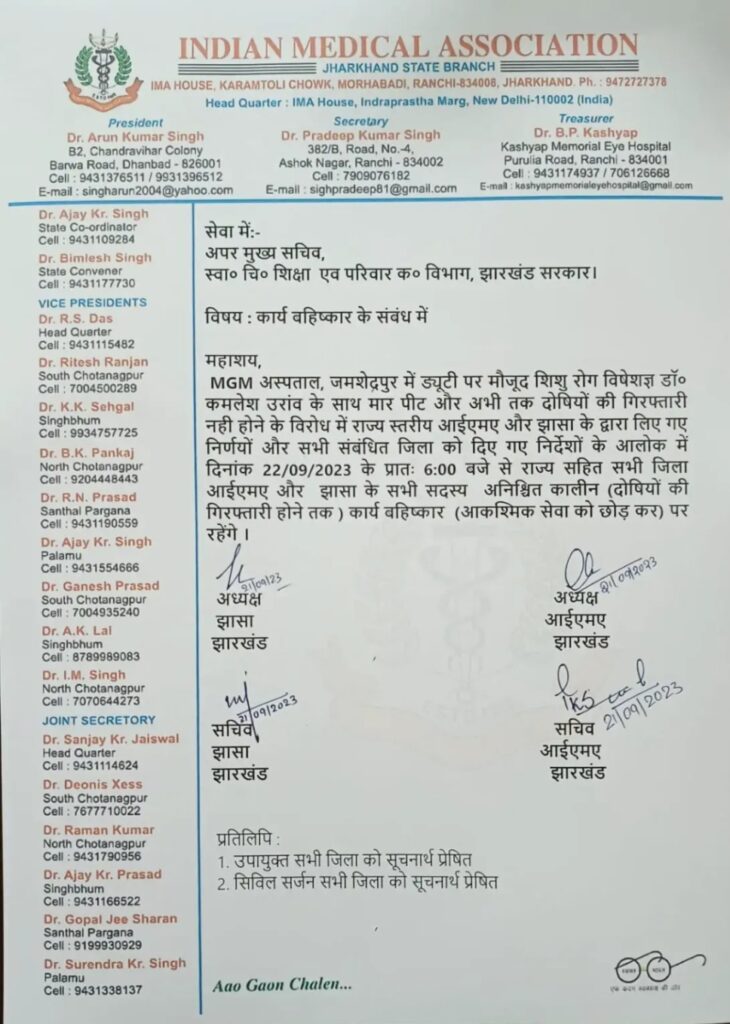 INDIAN MEDICAL ASSOCIATION
JHARKHAND STATE BRANCH
IMA HOUSE, KARAMTOLI CHOWK, MORHABADI, RANCHI-834008, JHARKHAND. Ph. : 9472727378
Head Quarter : IMA House, Indraprastha Marg, New Delhi-110002 (India)
President
Dr. Arun Kumar Singh
B2, Chandravihar Colony
Barwa Road, Dhanbad - 826001
Cell : 9431376511 / 9931396512
E-mail : singharun2004@yahoo.com
Secretary
Dr. Pradeep Kumar Singh
382/B, Road, No.-4,
Ashok Nagar, Ranchi - 834002
Cell : 7909076182
E-mail : sighpradeep81@gmail.com
Treasurer
Dr. B.P. Kashyap
Kashyap Memorial Eye Hospital
Purulia Road, Ranchi - 834001
Cell : 9431174937 / 706126668
E-mail : kashyapmemorialeyehospital@gmail.com
Dr. Ajay Kr. Singh
State Co-ordinator
Cell : 9431109284
Dr. Bimlesh Singh
State Convener
Cell : 9431177730
VICE PRESIDENTS
Dr. R.S. Das
Head Quarter
Cell : 9431115482
Dr. Ritesh Ranjan
South Chotanagpur
Cell : 7004500289
Dr. K.K. Sehgal
Singhbhum
Cell : 9934757725
Dr. B.K. Pankaj
North Chotanagpur
Cell : 9204448443
Dr. R.N. Prasad
Santhal Pargana
Cell : 9431190559
Dr. Ajay Kr. Singh
Palamu
Cell : 9431554666
Dr. Ganesh Prasad
South Chotanagpur
Cell : 7004935240
Dr. A.K. Lal
Singhbhum
Cell : 8789989083
Dr. I.M. Singh
North Chotanagpur
Cell : 7070644273
JOINT SECRETARY
Dr. Sanjay Kr. Jaiswal
Head Quarter
Cell : 9431114624
Dr. Deonis Xess
South Chotanagpur
Cell : 7677710022
Dr. Raman Kumar
North Chotanagpur
Cell : 9431790956
Dr. Ajay Kr. Prasad
Singhbhum
Cell : 9431166522
Dr. Gopal Jee Sharan
Santhal Pargana
Cell : 9199930929
Dr. Surendra Kr. Singh
Palamu
Cell : 9431338137
सेवा में:-
अपर मुख्य सचिव,
स्वा० चि० शिक्षा एव परिवार क० विभाग, झारखंड सरकार।
विषय : कार्य वहिष्कार के संबंध में
महाशय,
MGM अस्पताल, जमशेद्रपुर में ड्यूटी पर मौजूद शिशु रोग विषेशज्ञ डॉ०
कमलेश उरांव के साथ मार पीट और अभी तक दोषियों की गिरफ्तारी
नही होने के विरोध में राज्य स्तरीय आईएमए और झासा के द्वारा लिए गए
निर्णयों और सभी संबंधित जिला को दिए गए निर्देशों के आलोक में
दिनांक 22/09/2023 के प्रातः 6:00 बजे से राज्य सहित सभी जिला
आईएमए और झासा के सभी सदस्य अनिश्चित कालीन (दोषियों की
गिरफ्तारी होने तक ) कार्य वहिष्कार (आकश्मिक सेवा को छोड़ कर) पर
रहेंगे ।
21/09/23
अध्यक्ष
झासा
झारखंड
21/09/2023
अध्यक्ष
आईएमए
झारखंड
21/09/2023
सचिव
झासा
झारखंड
21/09/2023
सचिव
आईएमए
झारखंड
प्रतिलिपि :
1. उपायुक्त सभी जिला को सूचनार्थ प्रेषित
2. सिविल सर्जन सभी जिला को सूचनार्थ प्रेषित
Aao Gaon Chalen...
स्वच्छ भारत
एक कदम स्वच्छता की ओर